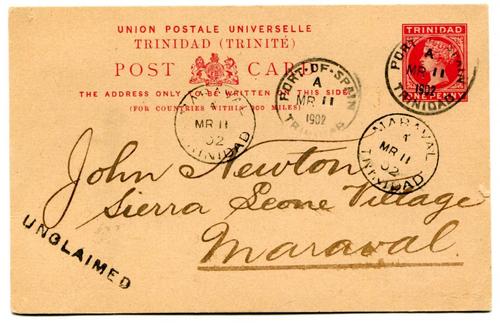 UNION POSTALE UNIVERSELLE
TRINIDAD (TRINITÉ)
POST CARD
THE ADDRESS ONLY TO BE WRITTEN ON THIS SIDE
(FOR COUNTRIES WITHIN 300 MILES)
TRINIDAD
ONE PENNY
PORT OF SPAIN
A
MR 11
1902
TRINIDAD
PORT-OF-SPAIN
A
MR 11
1902
TRINIDAD
MARAVAL
MR 11
02
TRINIDAD
MARAVAL
MR 11
02
TRINIDAD
John Newton
Sierra Leone Village
Maraval.
UNCLAIMED